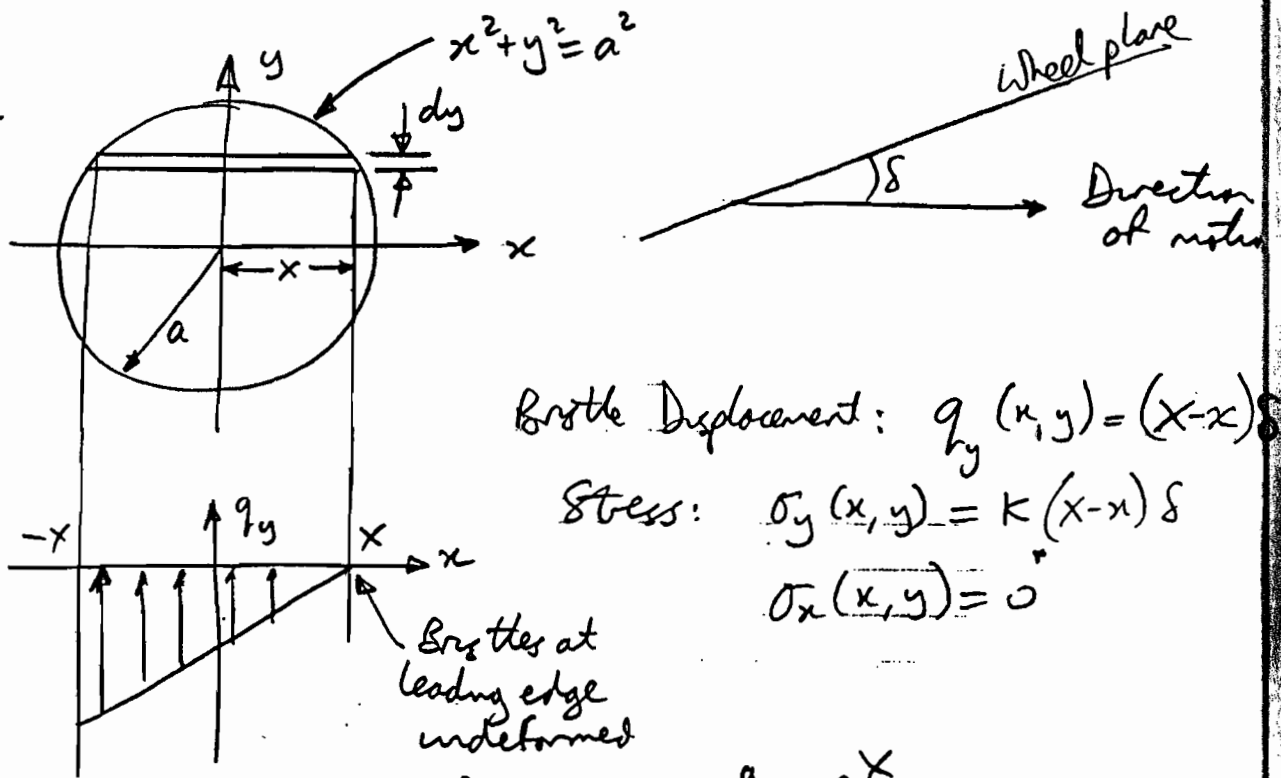 x²+y²=a²
y
dy
x
x
a
Wheel plane
δ
Direction
of motion
Bristle Displacement: q_y (x, y) = (X-x)δ
Stess: σ_y (x, y) = K (X-x) δ
σ_x (x, y) = 0
-X
q_y
X
x
Bristles at
leading edge
undeformed
a
X